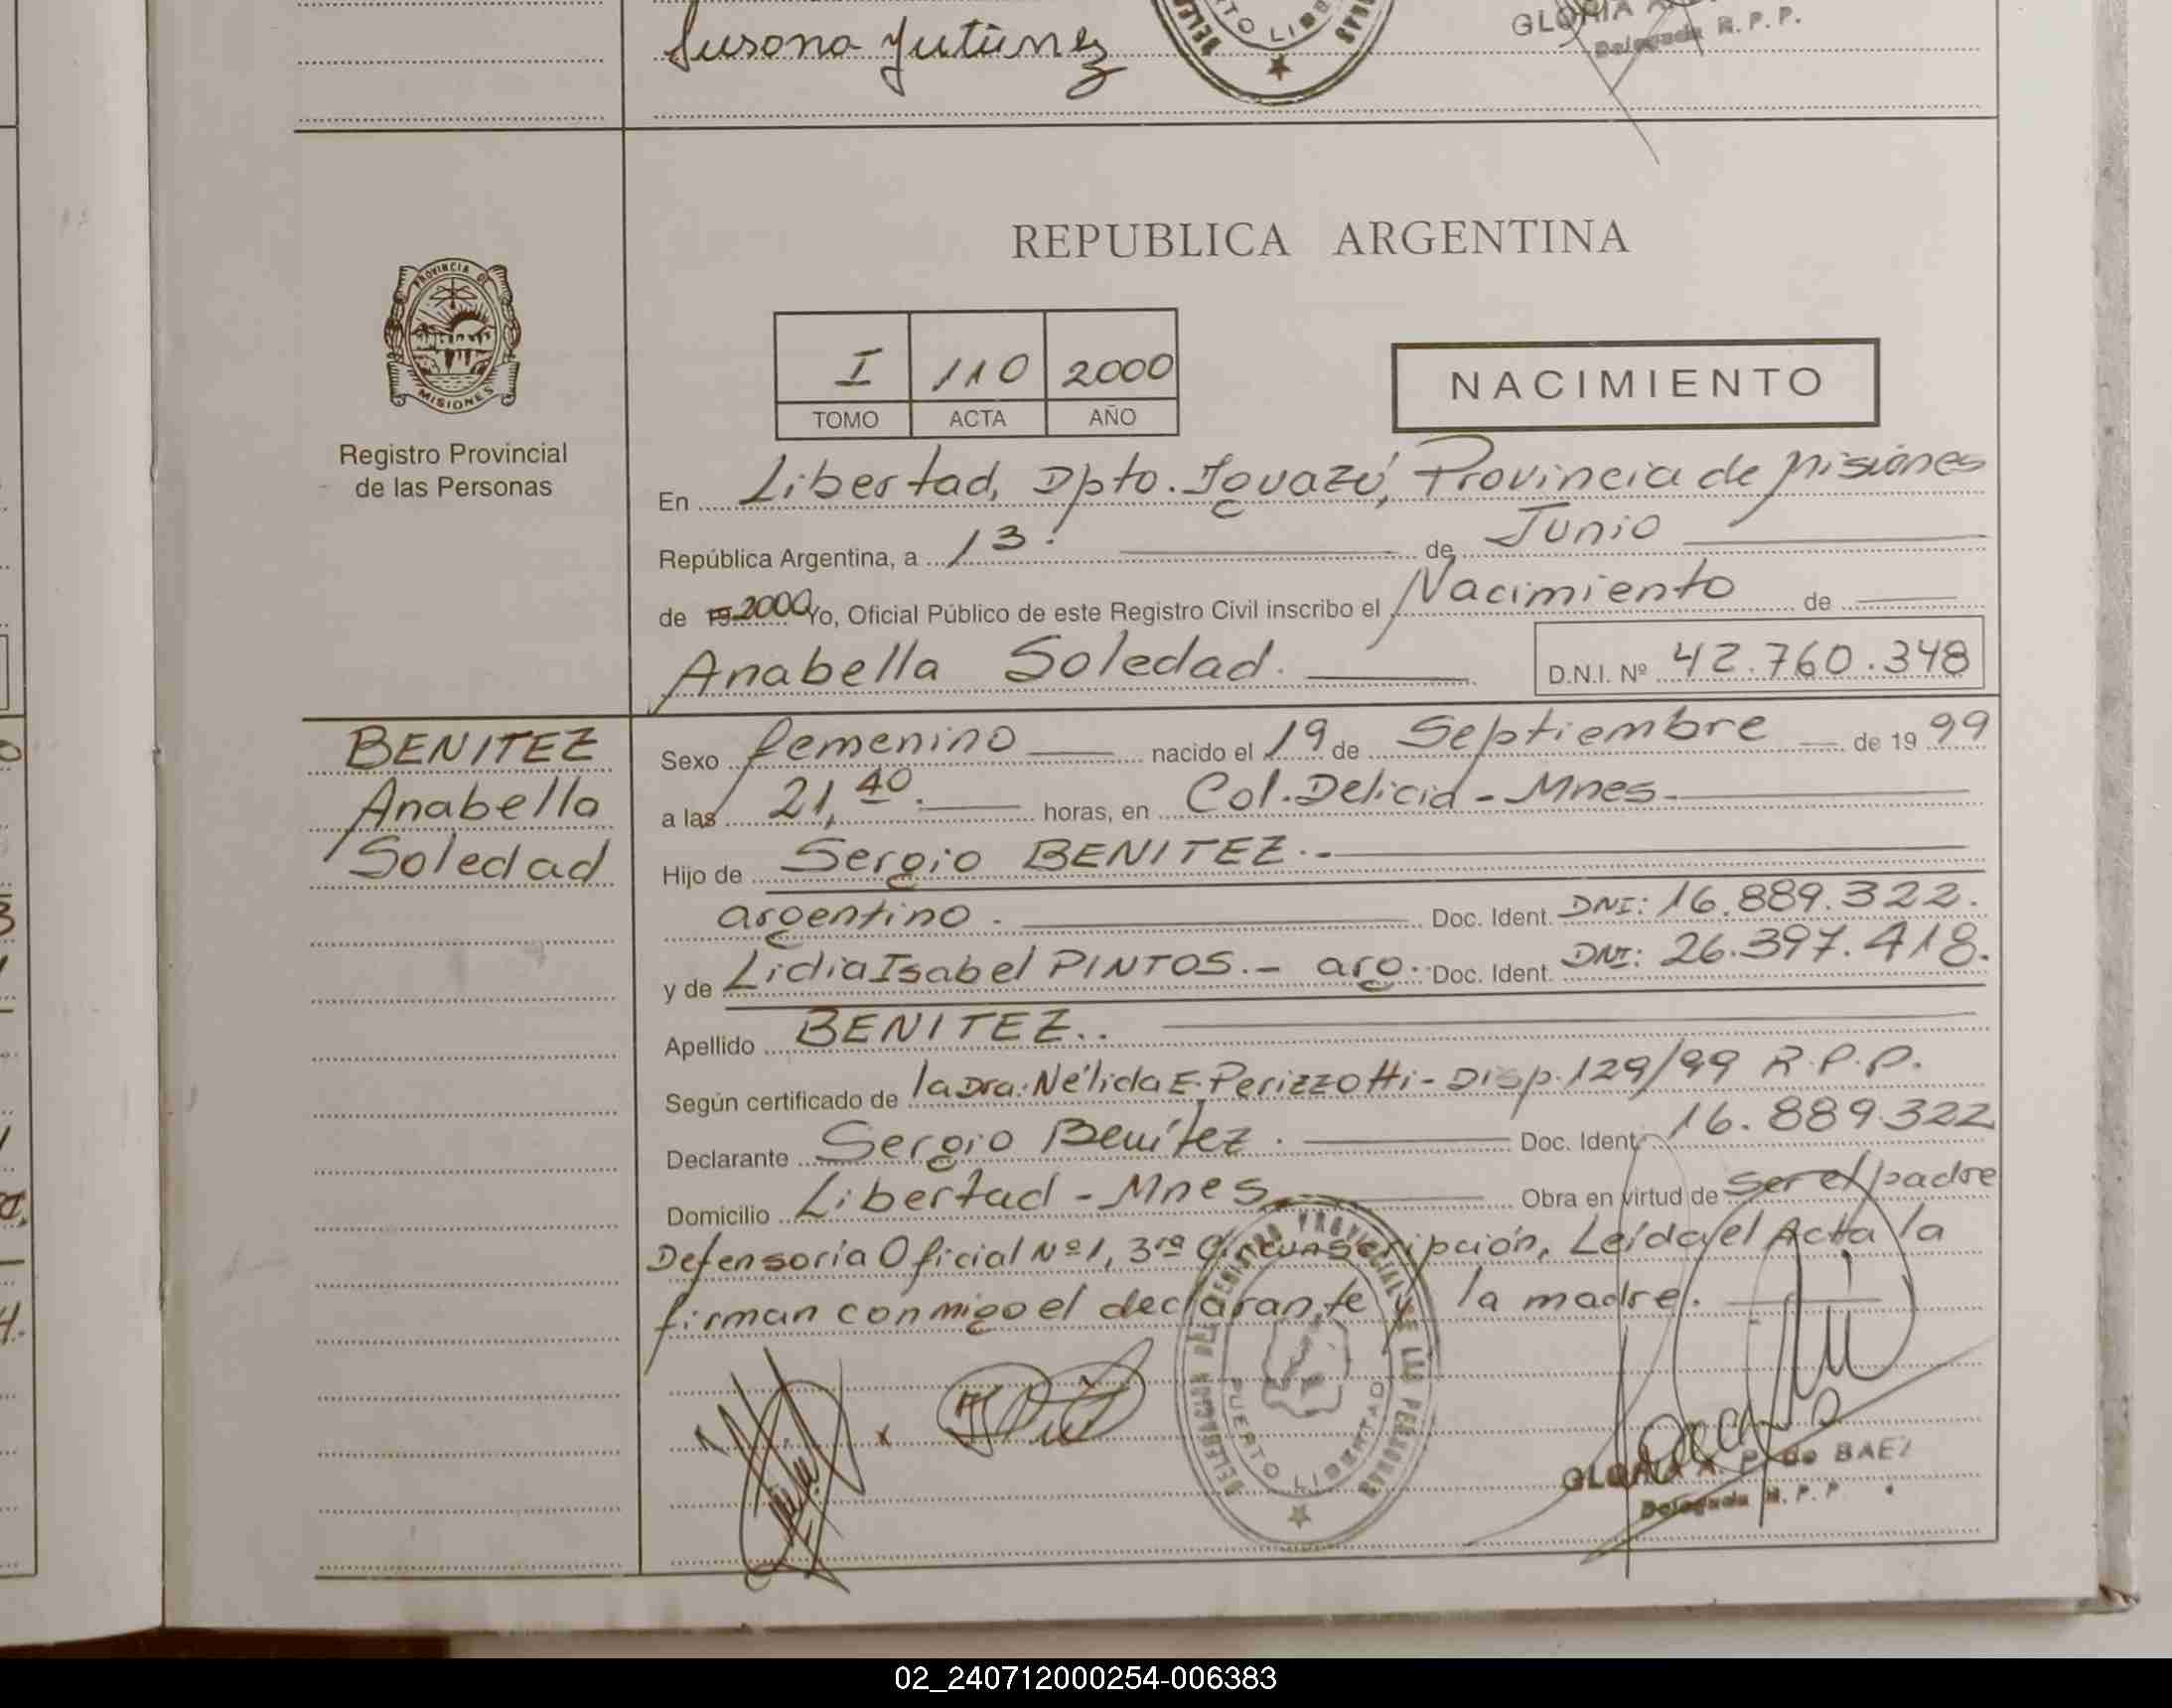 Susana Gutiérrez
GLORIA A.
Delegada R. P. P.
PUERTO LIBERTAD
REPUBLICA ARGENTINA
PROVINCIA DE MISIONES
I 110 2000
TOMO ACTA AÑO
NACIMIENTO
Registro Provincial
de las Personas
En Libertad, Dpto. Iguazú, Provincia de Misiones
República Argentina, a 13. de Junio
de 19 2000 Yo, Oficial Público de este Registro Civil inscribo el Nacimiento de
Anabella Soledad. D.N.I. Nº 42.760.348
BENITEZ
Anabella
Soledad
Sexo femenino nacido el 19 de Septiembre de 19 99
a las 21,40. horas, en Col. Delicia - Mnes.
Hijo de Sergio BENITEZ.-
argentino. Doc. Ident. DNI: 16.889.322.
y de Lidia Isabel PINTOS.- arg. Doc. Ident. DNI: 26.397.418.
Apellido BENITEZ..
Según certificado de la Dra: Nélida E. Perizzotti - Disp. 129/99 R.P.P.
Declarante Sergio Benítez. Doc. Ident. 16.889.322
Domicilio Libertad - Mnes. Obra en virtud de ser el padre
Defensoría Oficial Nº 1, 3ra Circunscripción, Leída el Acta la
firman conmigo el declarante y la madre.
DELEGACION DEL REGISTRO PROVINCIAL DE LAS PERSONAS
PUERTO LIBERTAD
x
GLORIA A. P. de BAEZ
Delegada R. P. P.
02_240712000254-006383